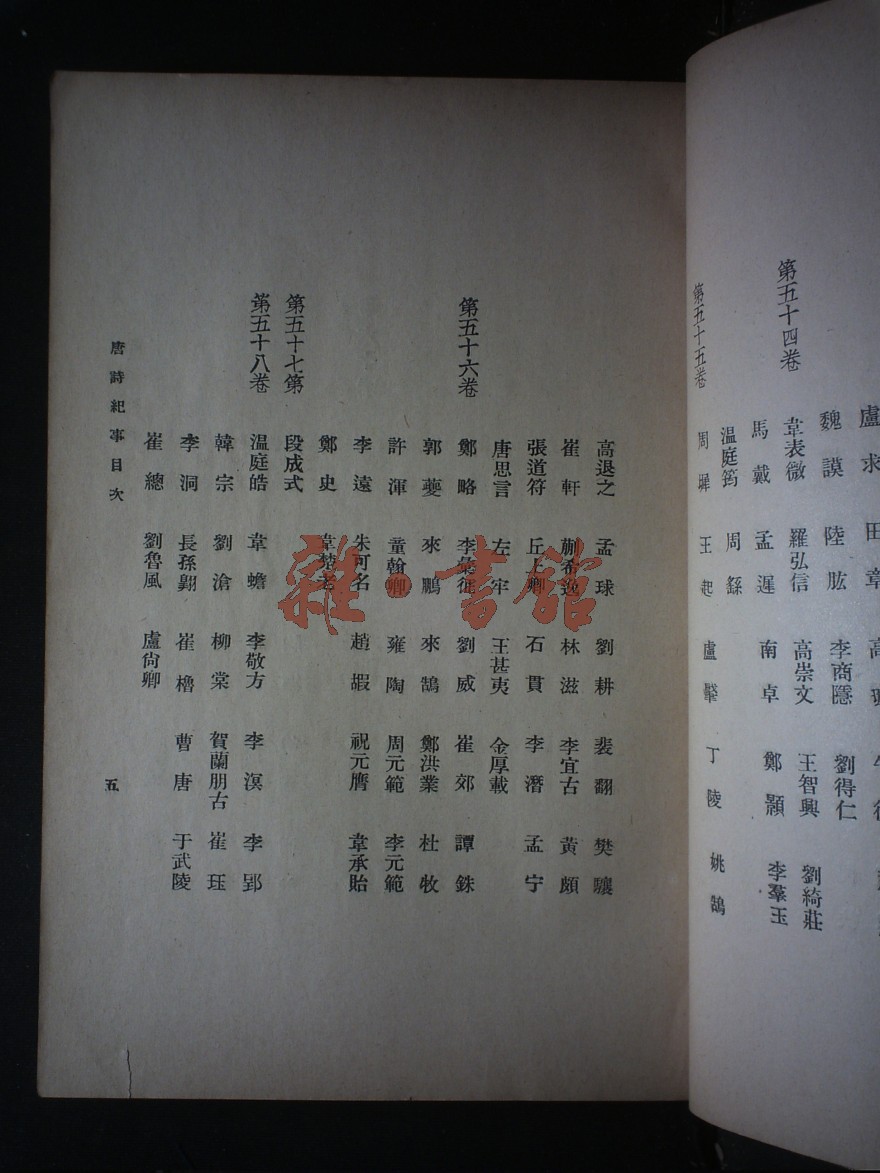 盧求 田章
魏謨 陸肱 李商隱 劉得仁
第五十四卷
韋表微 羅弘信 高崇文 王智興 劉綺莊
馬戴 孟遲 南卓 鄭顥 李羣玉
溫庭筠 周繇
第五十五卷
周墀 王起 盧肇 丁陵 姚鵠
高退之 孟球 劉耕 裴翻 樊驤
崔軒 蒯希逸 林滋 李宜古 黃頗
張道符 丘上卿 石貫 李潛 孟宁
唐思言 左牢 王甚夷 金厚載
第五十六卷
鄭略 李彙征 劉威 崔郊 譚銖
郭夔 來鵬 來鵠 鄭洪業 杜牧
許渾 童翰卿 雍陶 周元範 李元範
李遠 朱可名 趙嘏 祝元膺 韋承貽
鄭史 韋楚老
第五十七第
段成式
第五十八卷
溫庭皓 韋蟾 李敬方 李溟 李郢
韓宗 劉滄 柳棠 賀蘭朋古 崔珏
李洞 長孫翱 崔櫓 曹唐 于武陵
崔總 劉魯風 盧尙卿
唐詩紀事目次
五
雜·書館